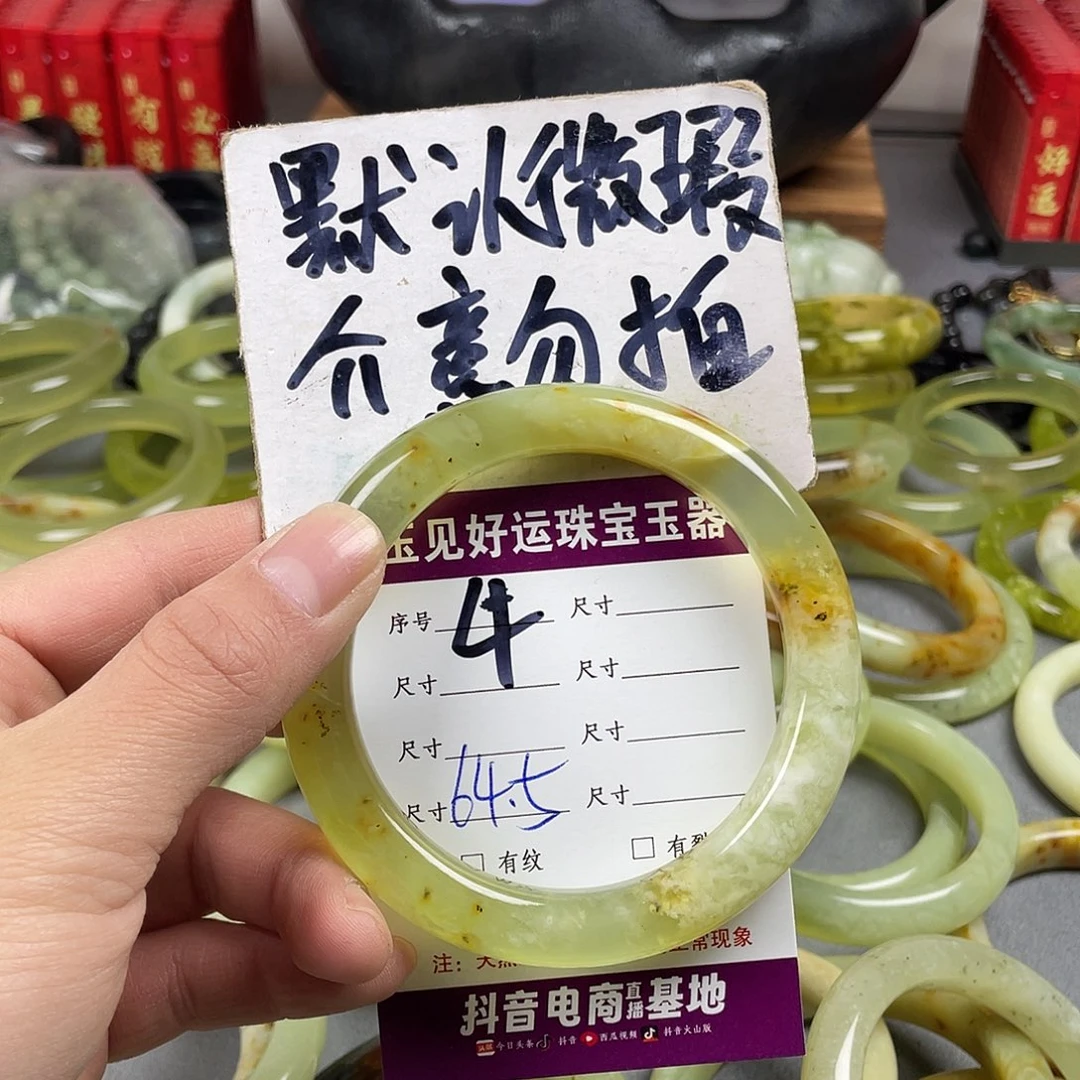 默认微瑕
介意勿拍
玉见好运珠宝玉器
序号 4 尺寸
尺寸 尺寸
尺寸 尺寸
尺寸 64.5 尺寸
□ 有纹 □ 有裂
注：天然 正常现象
抖音电商直播基地
头条 今日头条 抖音 西瓜视频 抖音火山版
好运